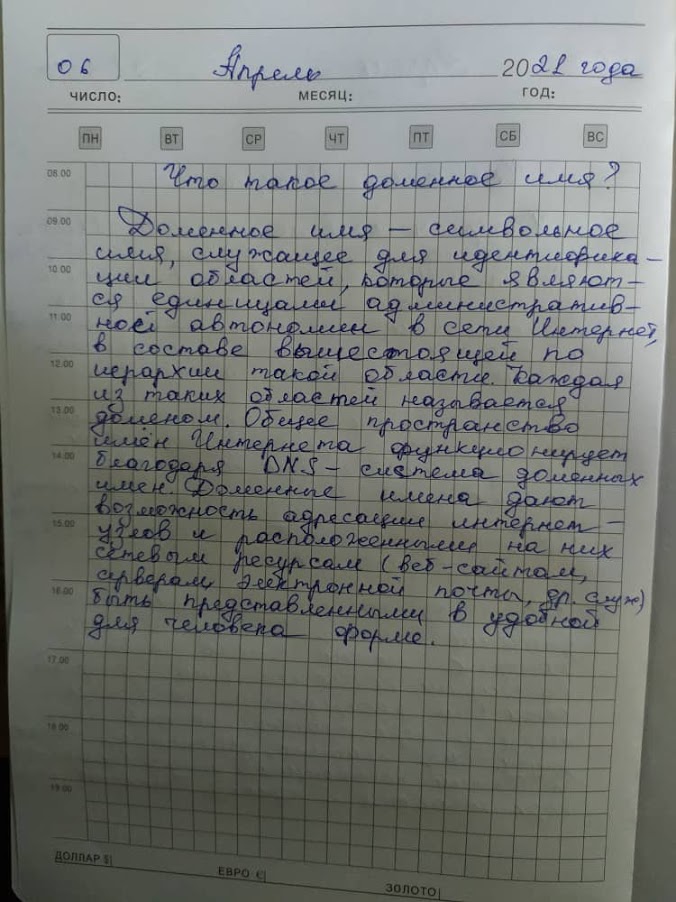 06 Апрель 2021 года
ЧИСЛО: МЕСЯЦ: ГОД:
ПН ВТ СР ЧТ ПТ СБ ВС
08.00 Что такое доменное имя?
09.00 Доменное имя — символьное
имя, служащее для идентифика-
10.00 ции областей, которые являют-
ся единицами административ-
11.00 ной автономии в сети Интернет,
в составе вышестоящей по
12.00 иерархии такой области. Каждая
из таких областей называется
13.00 доменом. Общее пространство
имён Интернета функционирует
14.00 благодаря DNS – система доменных
имен. Доменные имена дают
15.00 возможность адресации интернет-
узлов и расположенными на них
сетевым ресурсам (веб-сайтам,
16.00 серверам электронной почты, др. служ)
быть представленными в удобной
для человека форме.
17.00
18.00
19.00
ДОЛЛАР $| ЕВРО €| ЗОЛОТО|